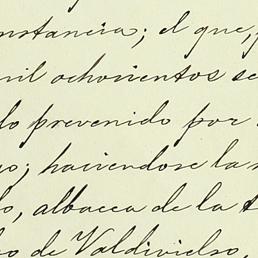 nstancia; el que,
mil ochocientos se
lo prevenido por
o; haciendose la
o, albacea de la t
o de Valdivielso,